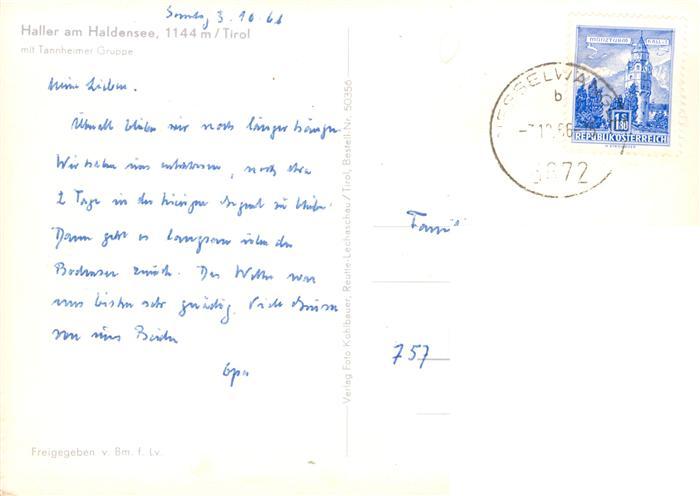 Haller am Haldensee, 1144 m / Tirol
mit Tannheimer Gruppe
3. 10. 66
Meine Lieben.
wir noch länger hängen
Wir haben uns entschlossen, noch etwa
2 Tage in der hiesigen Gegend zu bleiben
Dann geht es langsam über den
Bodensee zurück. Der Wetter war
uns bisher sehr gnädig. Viele Grüsse
von uns Beiden
Opa
Freigegeben v. Bm. f. Lv.
Verlag Foto Kohlbauer, Reutte-Lechaschau/Tirol, Bestell-Nr. 50356
NESSELWÄNGLE
b
6672
MÜNZTURM HALL i. T.
1.80
REPUBLIK ÖSTERREICH
Fami
757